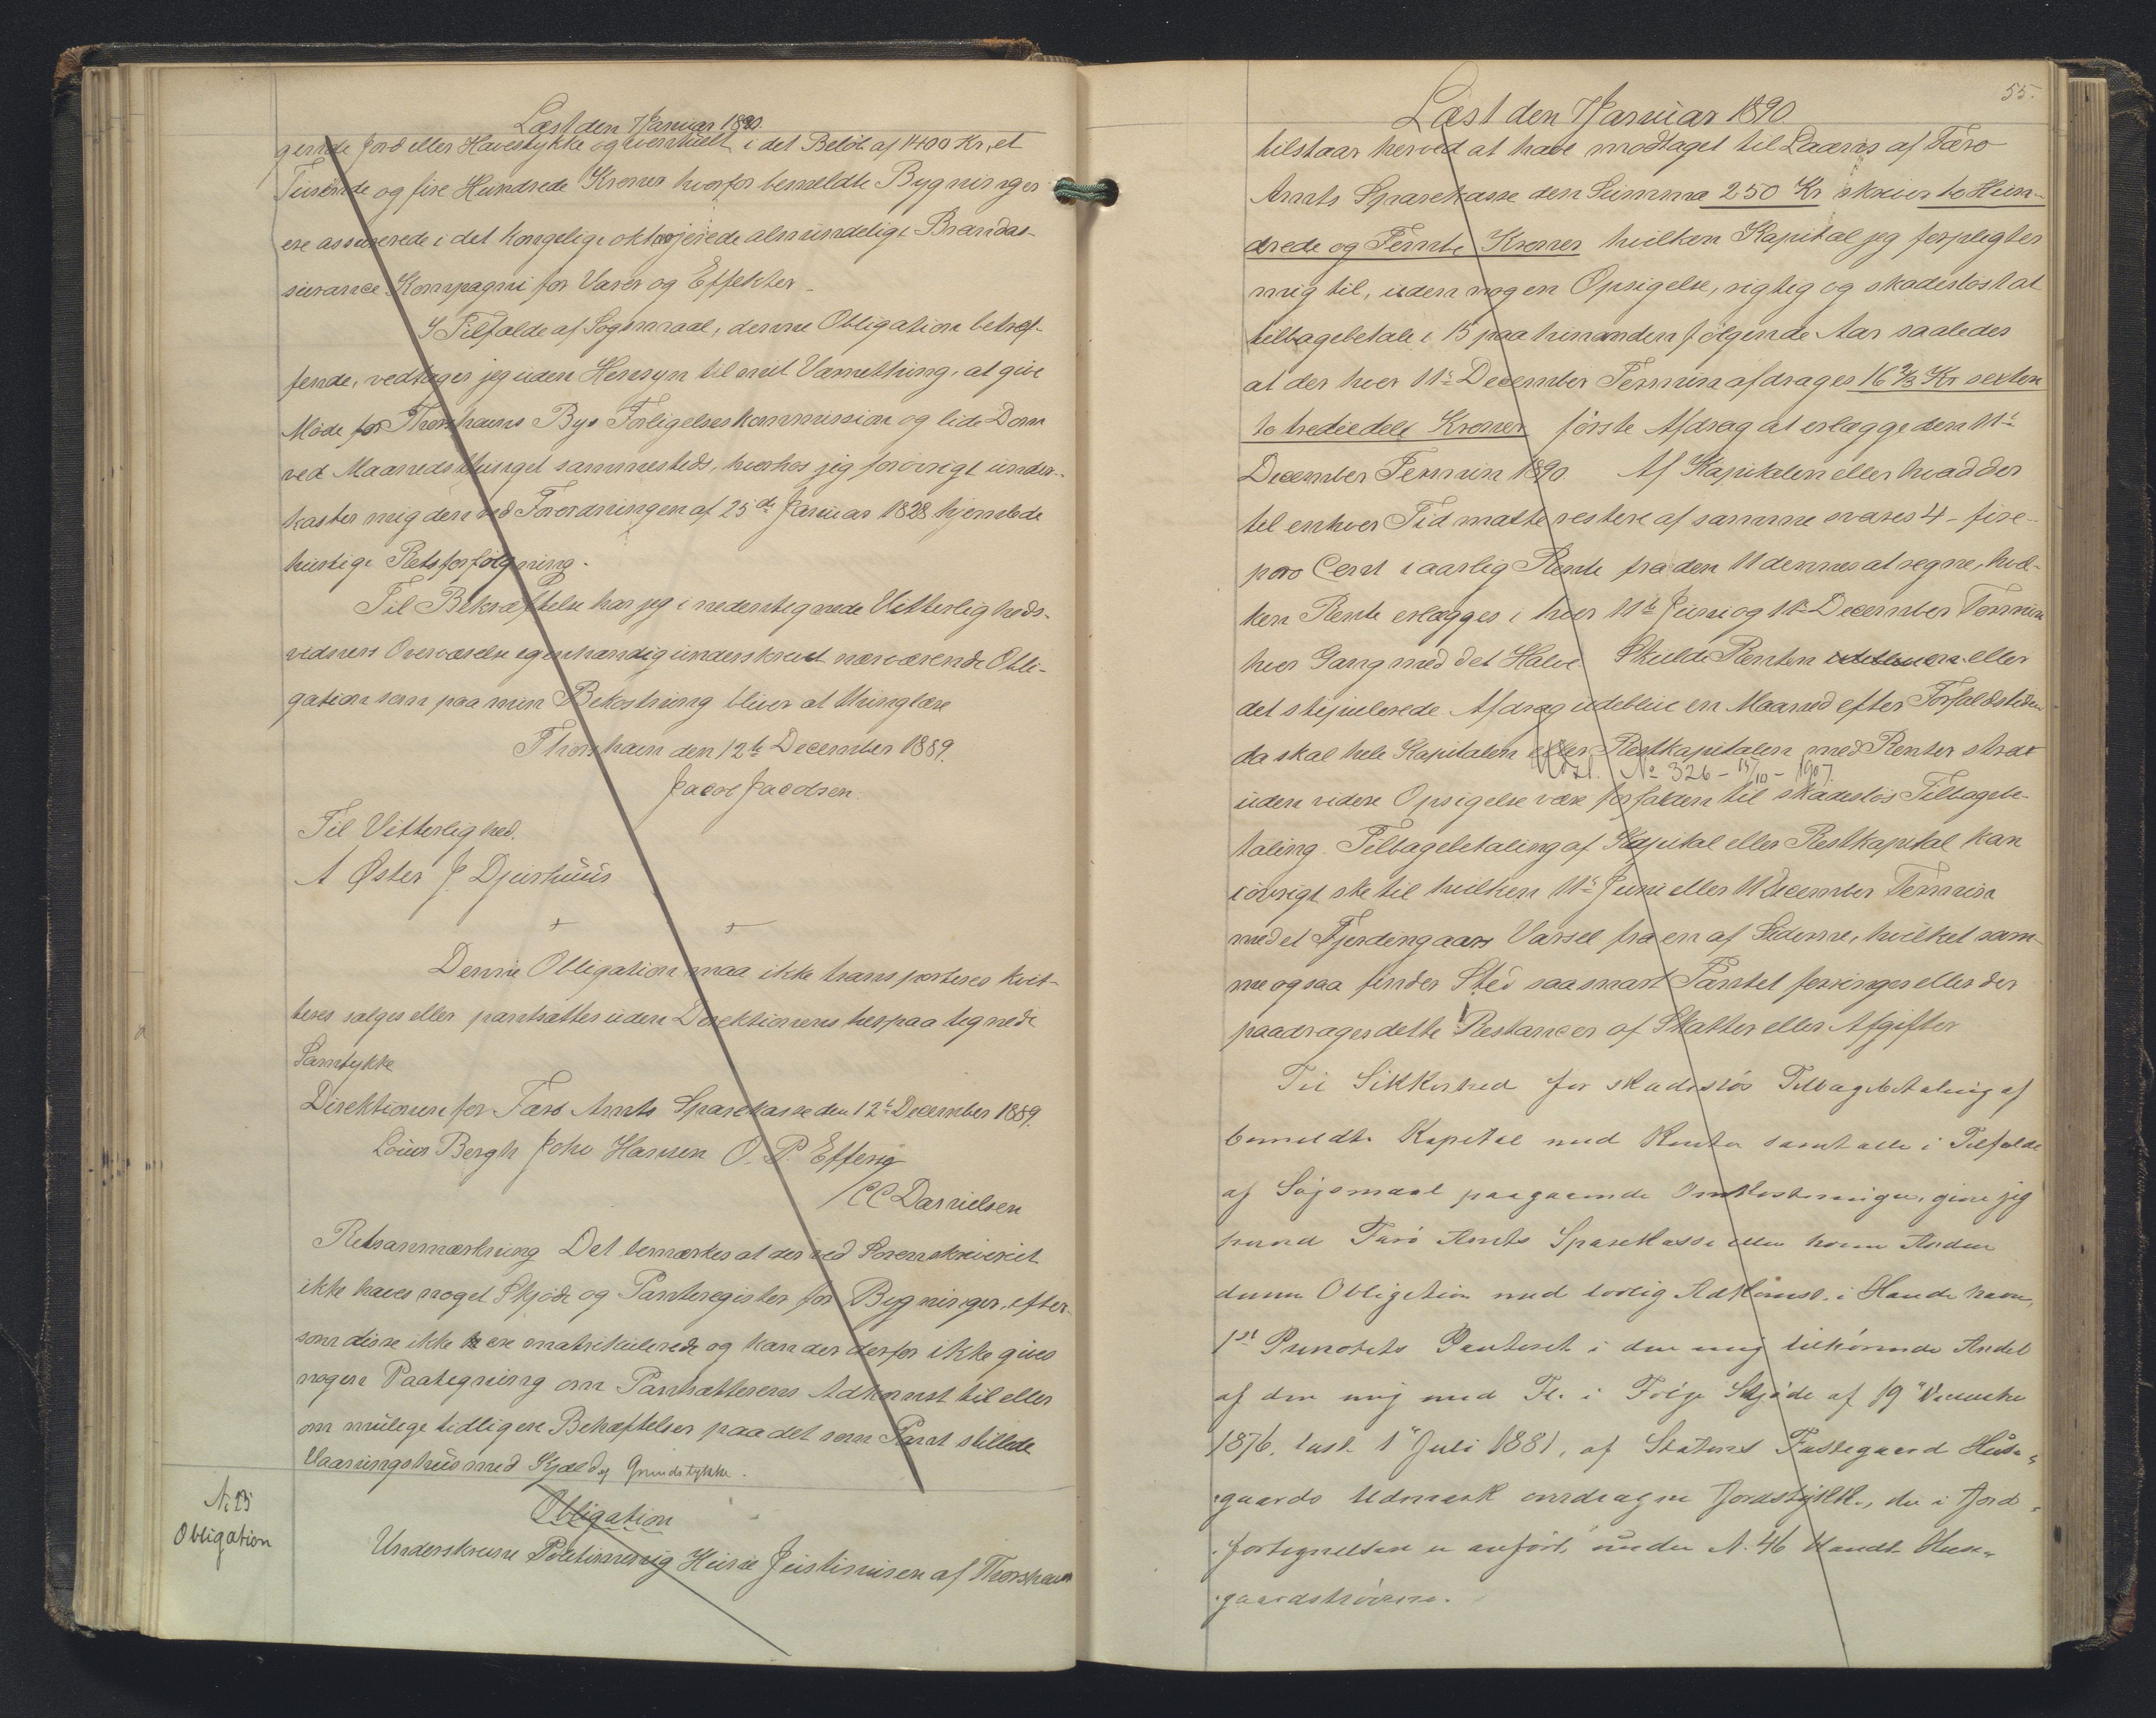 Læst den 7 Januar 1890.
gende Jord eller Havestykke og eventuelt i det Beløb af 1400 Kr, et
Tusende og fire Hundrede Kroner hvorfor bemeldte Bygninger
ere assurerede i det kongelige oktrojerede almindelige Brandas-
surance Kompagni for Varer og Effekter.
I Tilfælde af Søgsmaal, denne Obligation betræf-
fende, vedtager jeg uden Hensyn til mit Værnething, at give
Møde for Thorshavns Bys Forligelseskommission og lide Dom
ved Maanedsthinget sammesteds, hvorhos jeg forøvrigt under-
kaster mig den ved Forordningen af 25de Januar 1828 hjemlede
hurtige Retsforfølgning.
Til Bekræftelse har jeg i nedentegnede Vitterligheds-
vidners Overværelse egenhændig underskrevet nærværende Obli-
gation som paa min Bekostning bliver at thinglæse
Thorshavn den 12te December 1889.
Jacob Jacobsen.
Til Vitterlighed.
A Øster J. Djurhuus
Denne Obligation maa ikke transporteres kvit-
teres sælges eller pantsættes uden Direktionens herpaa tegnede
Samtykke
Direktionen for Færø Amts Sparekasse den 12te December 1889.
Louis Bergh Johs Hansen O. P. Effersø
/CC Danielsen
Retsanmærkning Det bemærkes at der ved Sorenskriveriet
ikke haves noget Skjøde og Panteregister for Bygninger, efter-
som disse ikke ere matrikulerede og kan der derfor ikke gives
nogen Paategning om Pantsætterens Adkomst til eller
om mulige tidligere Behæftelser paa det som Pant stillede
Vaaningshus med Kjæld og Grundstykke.
N. 25
Obligation
Obligation
Underskrevne Politimenig Heine Justinusen af Thorshavn
55.
Læst den 7 Januar 1890.
tilstaar herved at have modtaget til Laans af Færø
Amts Sparekasse den Summa 250 Kr skriver to Hun-
drede og Femti Kroner hvilken Kapital jeg forpligter
mig til, uden nogen Opsigelse, rigtig og skadesløst at
tilbagebetale i 15 paa hinanden følgende Aar saaledes
at der hver 11te December Termin afdrages 16 2/3 Kr sexten
to trediedele Kroner første Afdrag at erlægge den 11te
December Termin 1890. Af Kapitalen eller hvad der
til enhver Tid matte restere af samme svares 4 - fire -
pro Cent i aarlig Rente fra den 11 dennes at regne, hvil-
ken Rente erlægges i hver 11te Juni og 11te December Termin
hver Gang med det Halve. Skulde Renten eller
det stipulerede Afdrag udeblive en Maaned efter Forfaldstiden
da skal hele Kapitalen eller Restkapitalen med Renter strax
Udsl. No 326 - 15/10 - 1907.
uden videre Opsigelse være forfalden til skadesløs Tilbagebe-
taling. Tilbagebetaling af Kapital eller Restkapital kan
iøvrigt ske til hvilken 11te Juni eller 11 December Termin
med et Fjerdingaars Varsel fra en af Siderne, hvilket sam-
me ogsaa finder Sted saasnart Pantet forringes eller der
paadrages dette Restancer af Skatter eller Afgifter
Til Sikkerhed for skadesløs Tilbagebetaling af
bemeldte Kapital med Renter samt alle i Tilfælde
af Søgsmaal paagaaende Omkostninger, giver jeg
herved Færø Amts Sparekasse eller hvem Anden
denne Obligation med lovlig Adkomst i Hænde haver,
1ste Prioritets Panteret i den mig tilhørende Andel
af den mig med Fl. i Følge Skjøde af 19de December
1876, læst 1ste Juli 1881, af Statens Fæstegaard Huse-
gaards Udmark overdragne Jordstykke, der i Jord-
fortegnelsen er anført under N. 46 Kaldt Huse-
gaardstrøerne.